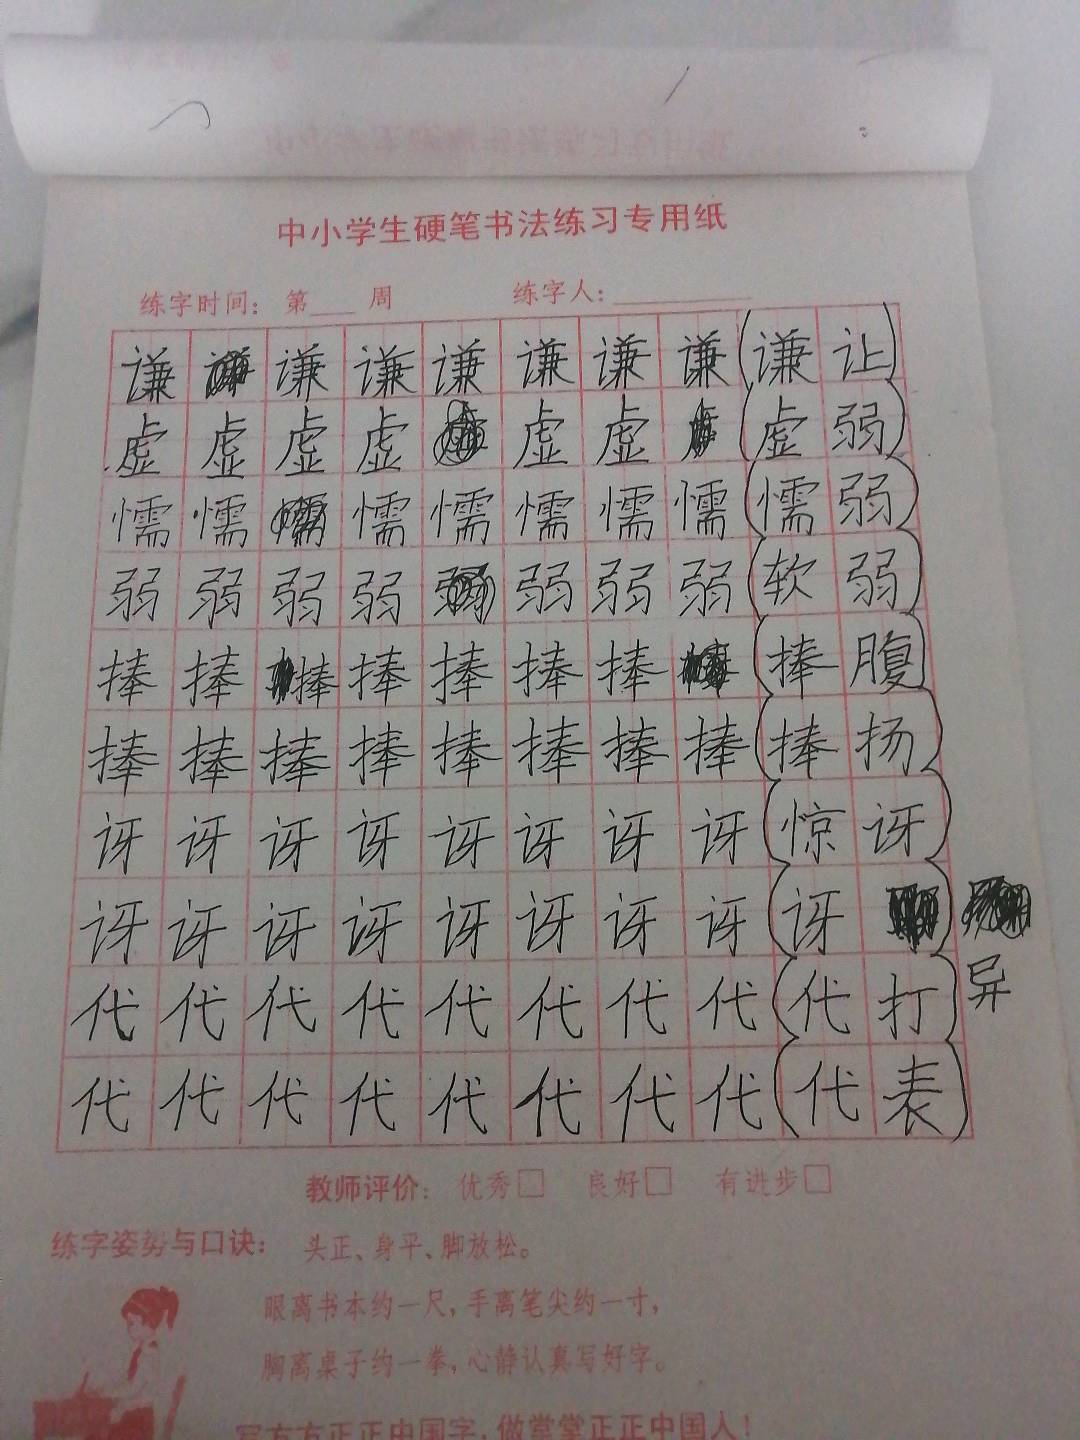 中小学生硬笔书法练习专用纸
练字时间： 第___周 练字人：________
谦 谦 谦 谦 谦 谦 谦 (谦 让)
虚 虚 虚 虚 虚 虚 (虚 弱)
懦 懦 懦 懦 懦 懦 懦 (懦 弱)
弱 弱 弱 弱 弱 弱 弱 (软 弱)
捧 捧 捧 捧 捧 捧 捧 (捧 腹)
捧 捧 捧 捧 捧 捧 捧 捧 (捧 扬)
讶 讶 讶 讶 讶 讶 讶 讶 (惊 讶)
讶 讶 讶 讶 讶 讶 讶 讶 (讶 )
异
代 代 代 代 代 代 代 代 (代 打)
代 代 代 代 代 代 代 代 (代 表)
教师评价： 优秀□ 良好□ 有进步□
练字姿势与口诀： 头正、身平、脚放松。
眼离书本约一尺，手离笔尖约一寸，
胸离桌子约一拳，心静认真写好字。
写方方正正中国字，做堂堂正正中国人！